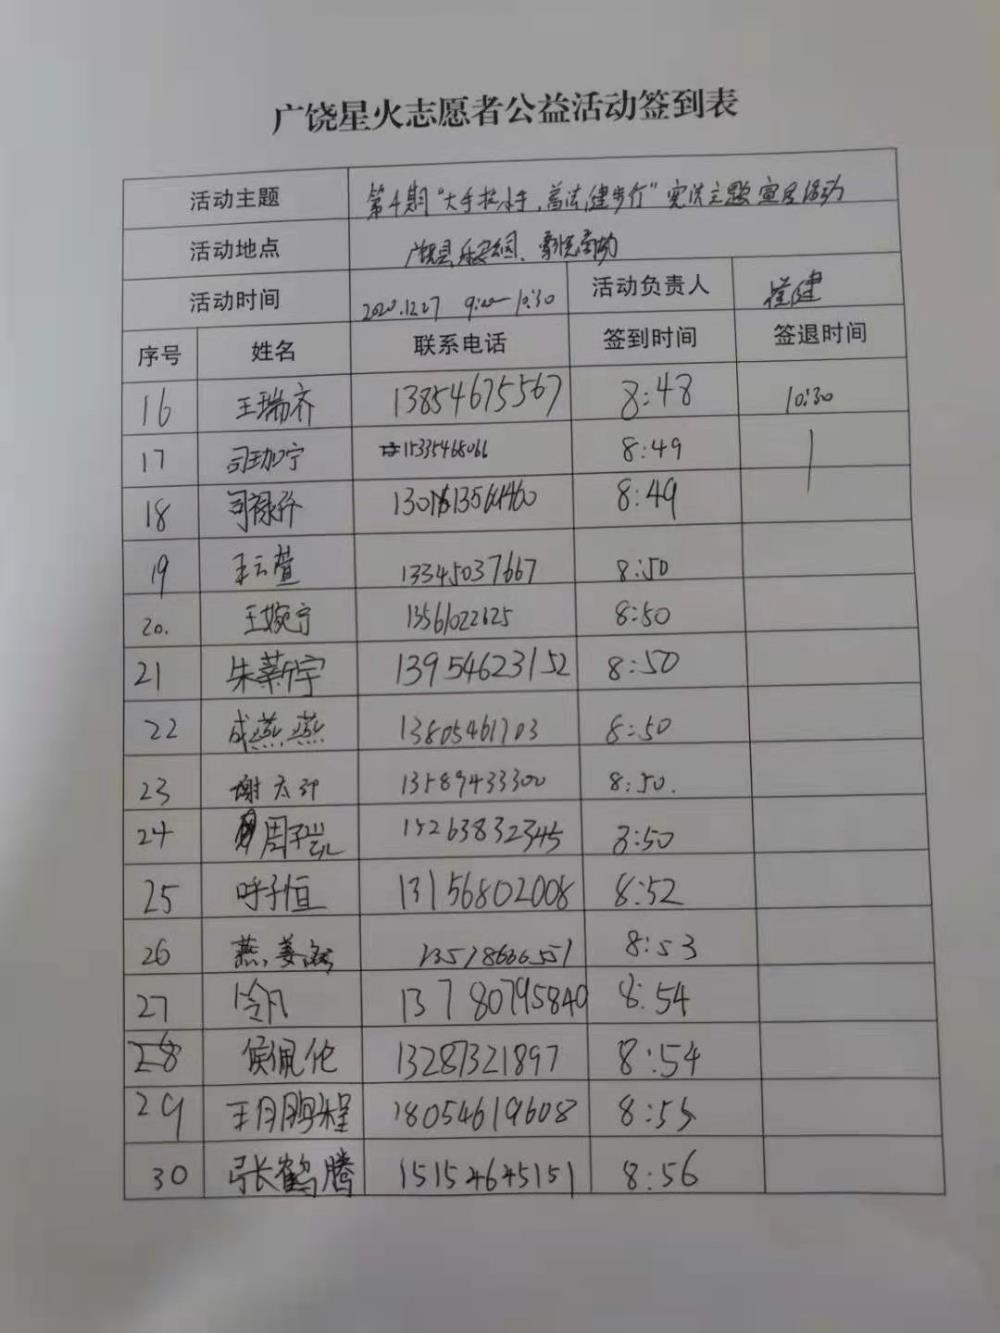 广饶星火志愿者公益活动签到表
活动主题 第4期"大手拉小手,普法健步行"宪法主题宣传活动
活动地点 广饶县乐安公园、
活动时间 2020.12.27 9:00-10:30 活动负责人 崔健
序号 姓名 联系电话 签到时间 签退时间
16 王瑞齐 13854675567 8:48 10:30
17 司珈宁 15335468066 8:49
18 司禄 8:49
19 王云萱 13345037667 8:50
20. 王婉宁 13561022625 8:50
21 朱薪宇 13954623152 8:50
22 成燕燕 13805461703 8:50
23 谢 13589433300 8:50.
24 周子凯 15263832345 8:50
25 呼子恒 13156802008 8:52
26 燕姜 8:53
27 冷凡 13780795840 8:54
28 侯佩伦 13287321897 8:54
29 王月鹏程 18054619608 8:55
30 张鹤腾 15154645151 8:56